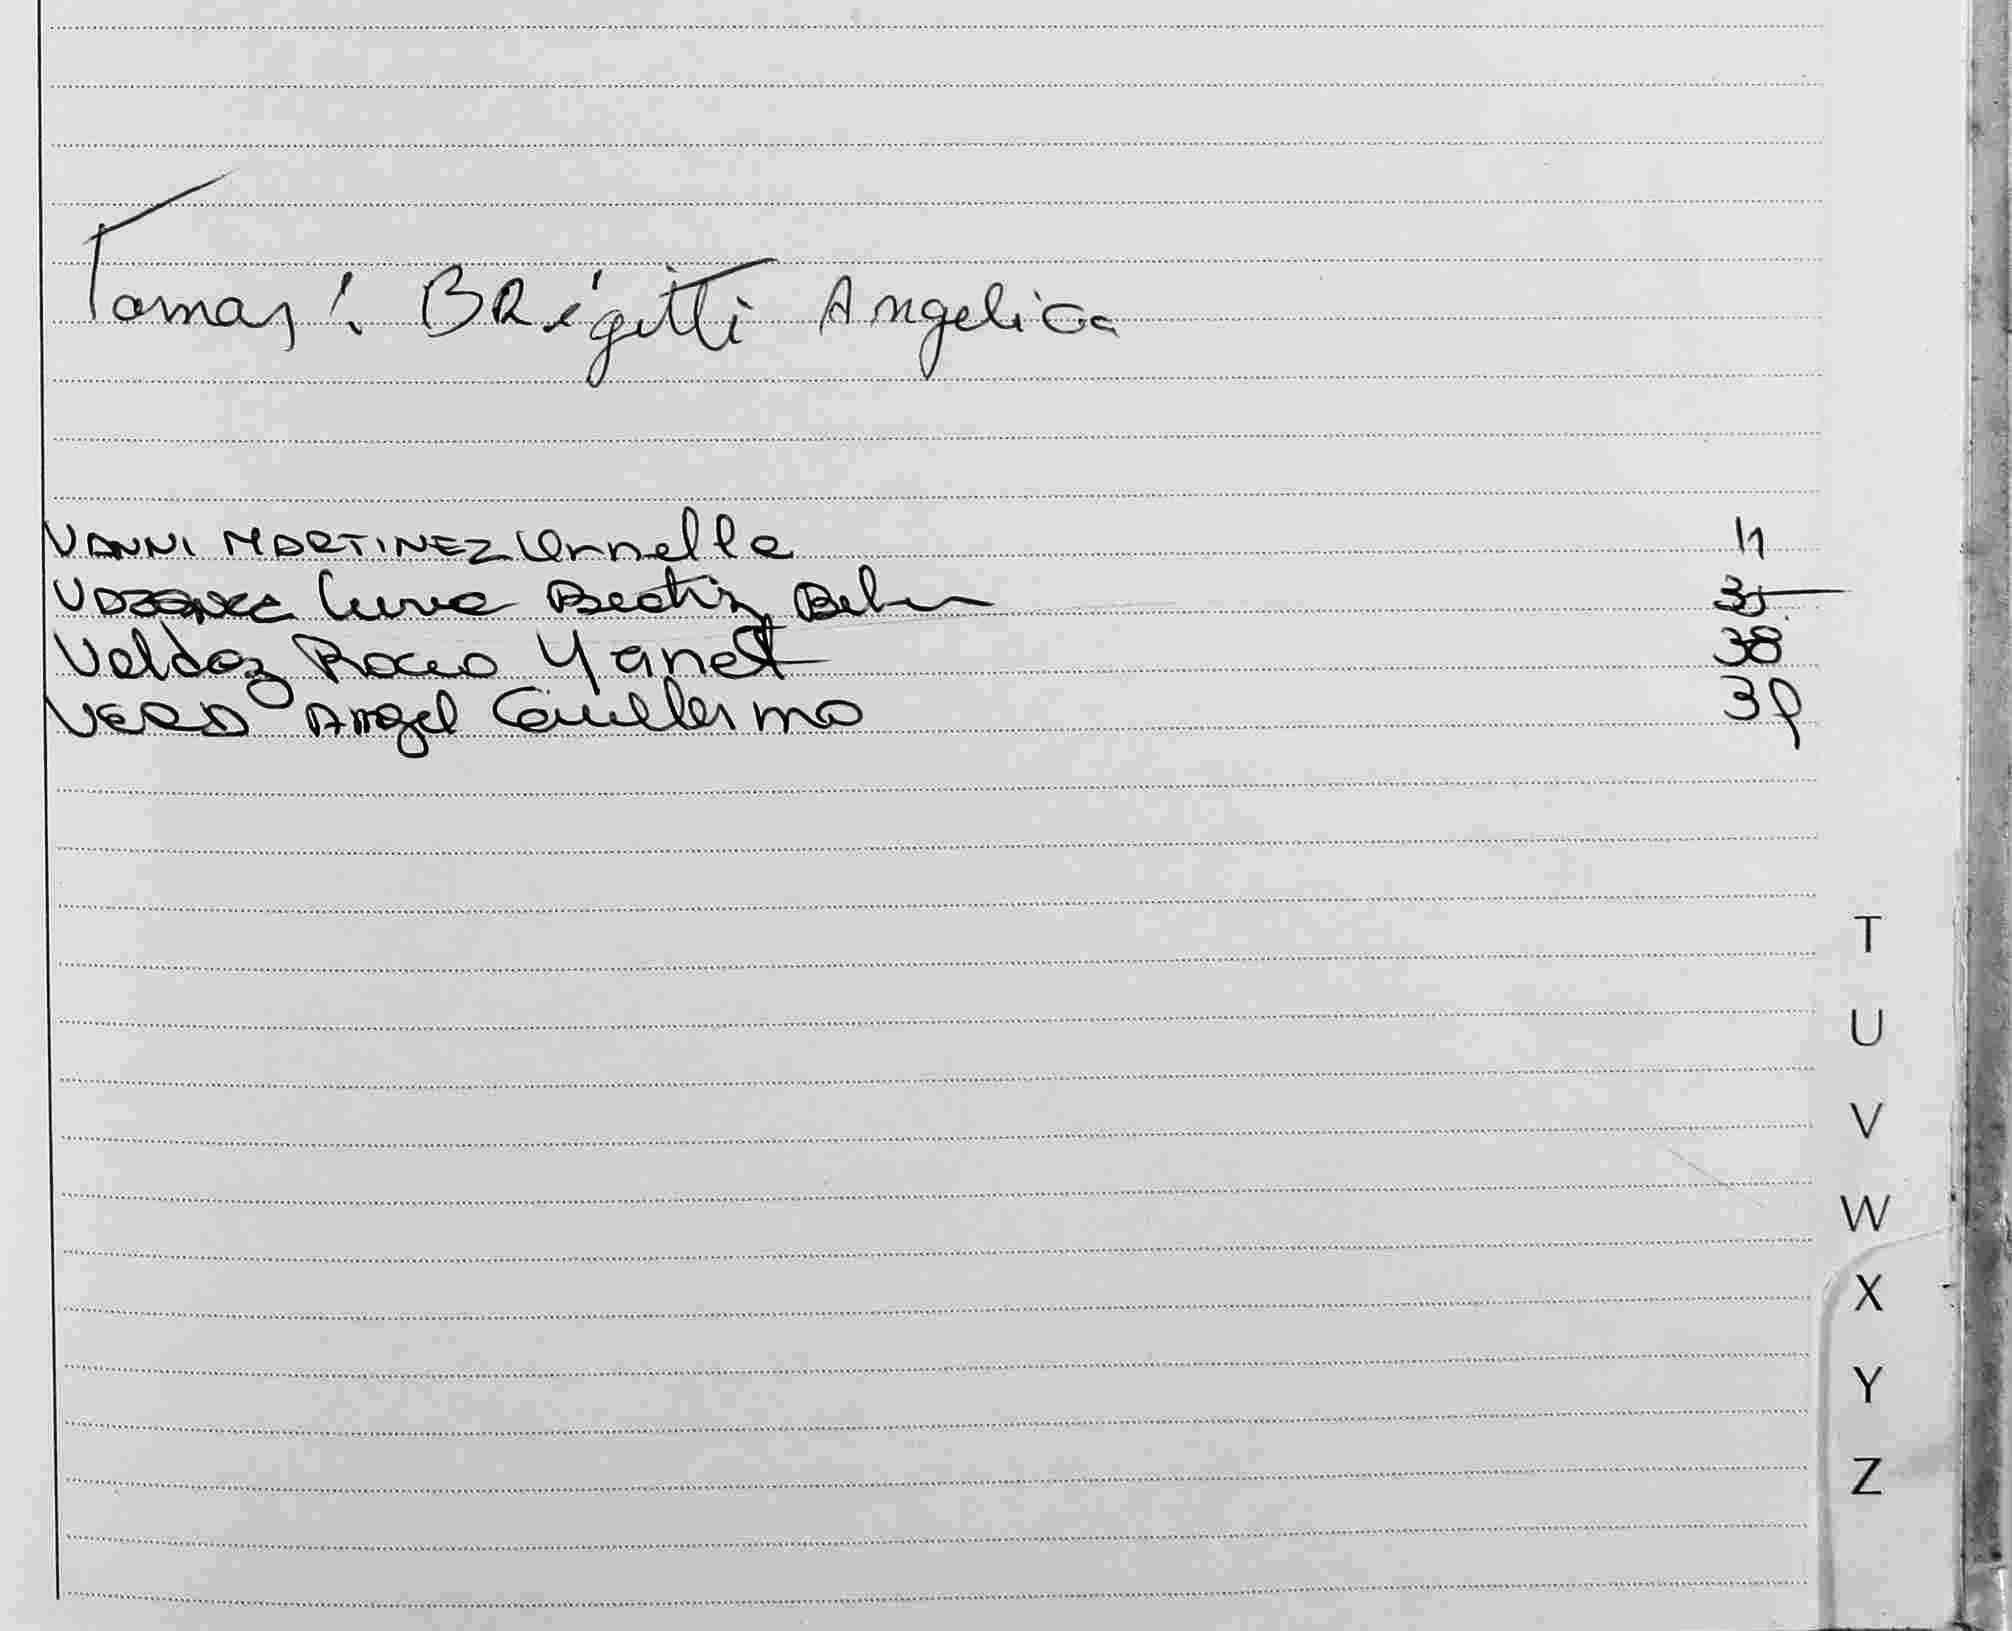 Tomas! BRigitti Angelica
VANNI MARTINEZ Ornnella 11
Luna Beatriz Belen 35
Valdez Rocio Yanet 38
VERA Angel Guillermo 39
T
U
V
W
X
Y
Z